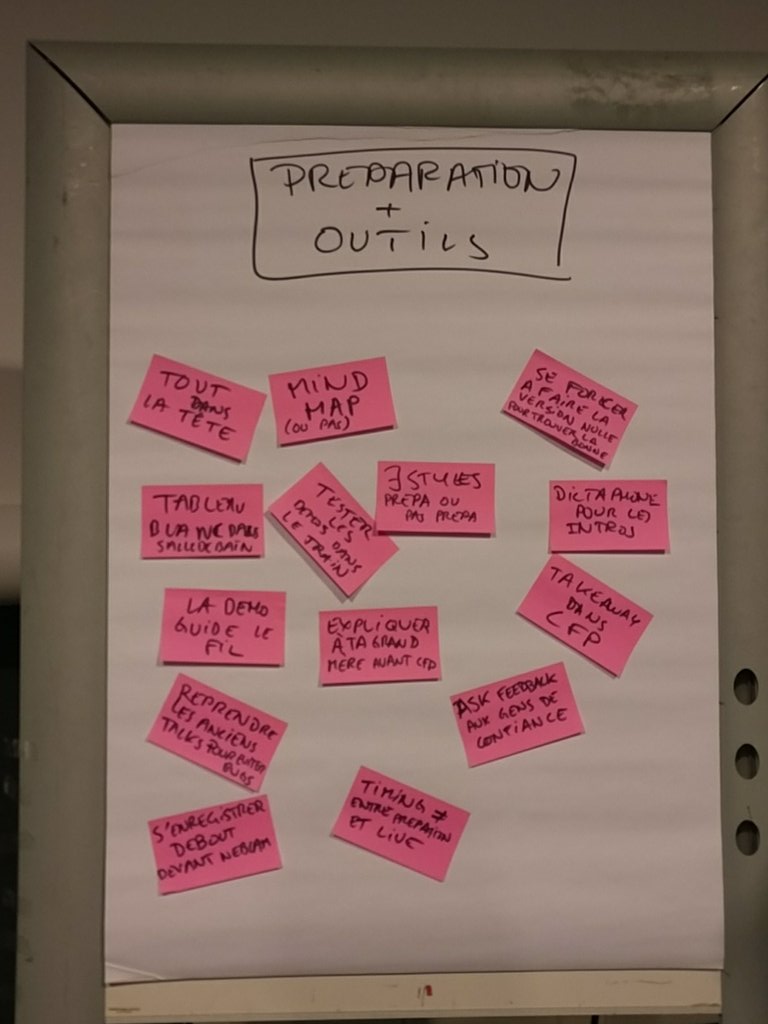 PREPARATION
+
OUTILS
TOUT
DANS
LA TÊTE
MIND
MAP
(OU PAS)
SE FORCER
A FAIRE LA
VERSION NULLE
POUR TROUVER LA
BONNE
TABLEAU
BLANC DANS
SALLE DE BAIN
TESTER
LES
DEMOS DANS
LE TRAIN
3 STYLES
PREPA OU
PAS PREPA
DICTAPHONE
POUR LES
INTROS
LA DEMO
GUIDE LE
FIL
EXPLIQUER
À TA GRAND
MERE AVANT CFP
TAKEAWAY
DANS
CFP
REPRENDRE
LES ANCIENS
TALKS POUR EVITER
BUGS
ASK FEEDBACK
AUX GENS DE
CONFIANCE
S'ENREGISTRER
DEBOUT
DEVANT WEBCAM
TIMING ≠
ENTRE PREPATION
ET LIVE